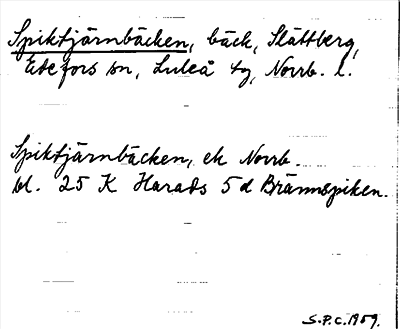 Spiktjärnbäcken, bäck, Slättberg,
Edefors sn, Luleå tg, Norrb. l.
Spiktjärnbäcken, ek Norrb.
bl. 25 K Harads 5 d Brännspiken.
S.P.C. 1959.